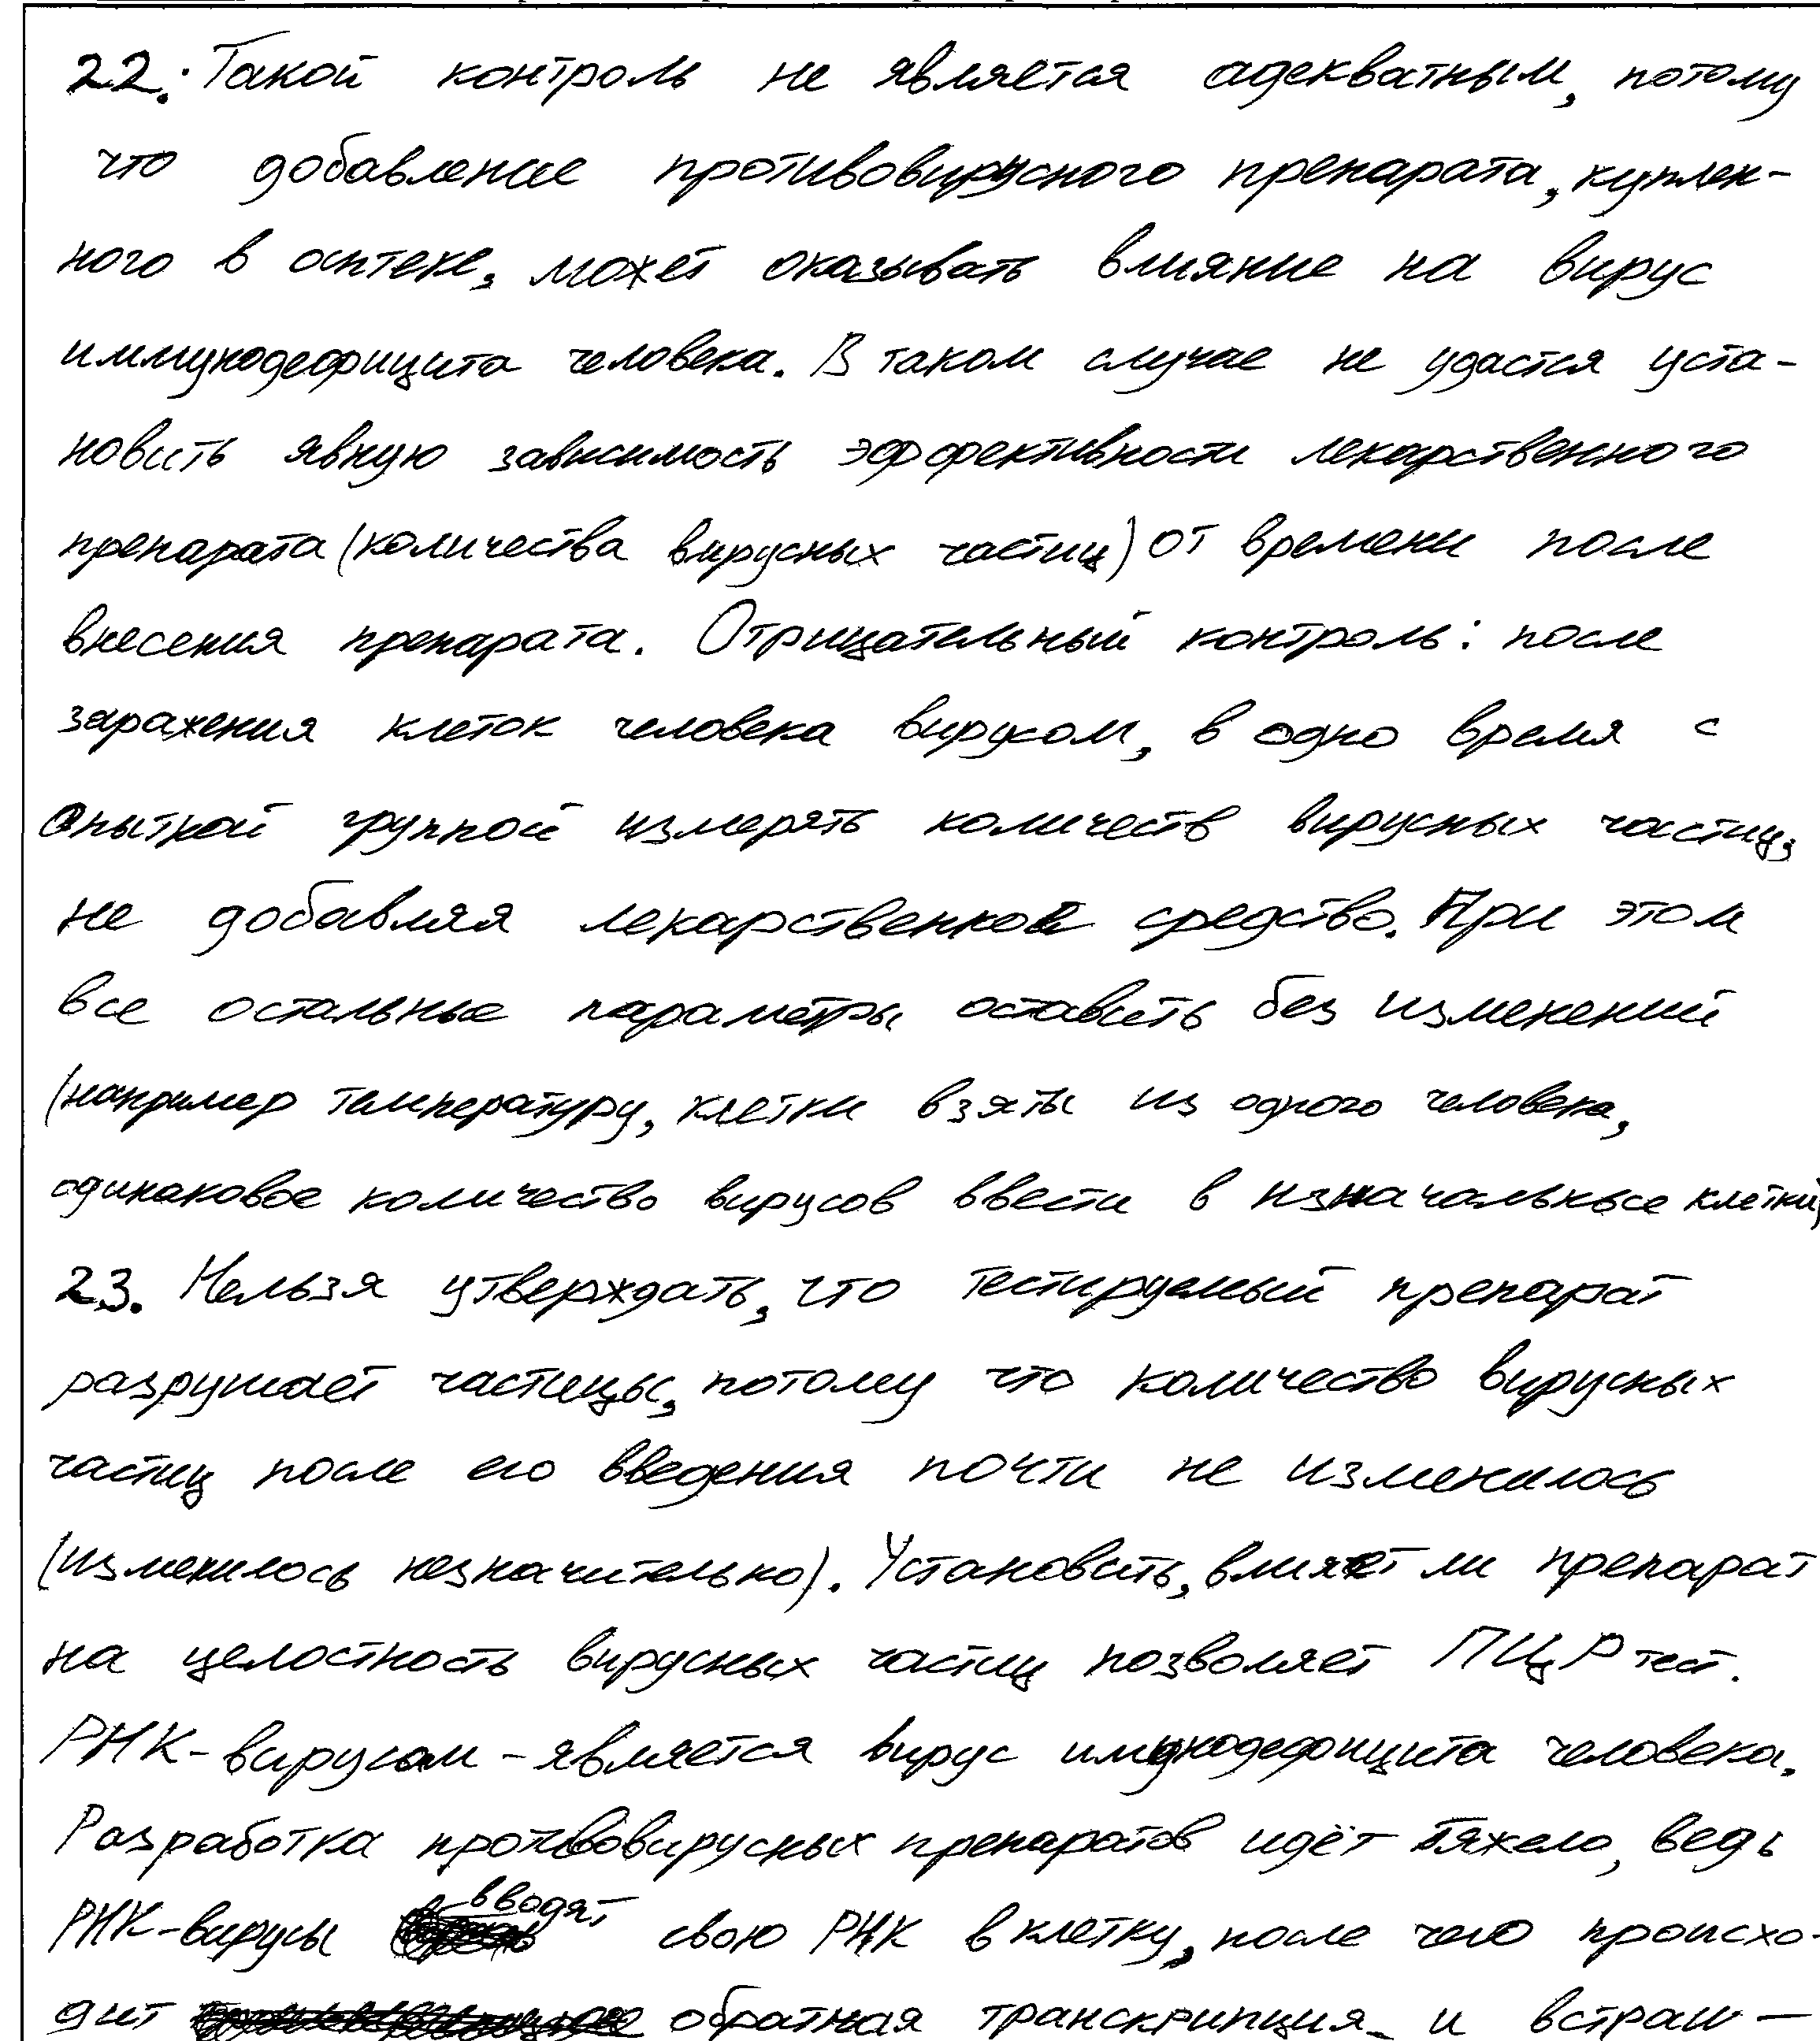 22. Такой контроль не является адекватным, потому
что добавление противовирусного препарата, куплен-
ного в аптеке, может оказывать влияние на вирус
иммунодефицита человека. В таком случае не удастся уста-
новить явную зависимость эффективности лекарственного
препарата (количества вирусных частиц) от времени после
внесения препарата. Отрицательный контроль: после
заражения клеток человека вирусом, в одно время с
опытной группой измерять количеств вирусных частиц,
не добавляя лекарственное средство. При этом
все остальные параметры оставить без изменений
(например температуру, клетки взяты из одного человека,
одинаковое количество вирусов ввести в изначальные клетки)
23. Нельзя утверждать, что тестируемый препарат
разрушает частицы, потому что количество вирусных
частиц после его введения почти не изменилось
(изменилось незначительно). Установить, влияет ли препарат
на целостность вирусных частиц позволяет ПЦР тест.
РНК-вирусом - является вирус имунодефицита человека.
Разработка противовирусных препаратов идёт тяжело, ведь
РНК-вирусы вводят свою РНК в клетку, после чего происхо-
дит обратная транскрипция и встраи-